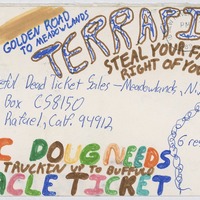 GOLDEN ROAD
TO MEADOWLANDS
TERRAPI
STEAL YOUR F
RIGHT OF YO
Dead Ticket Sales - Meadowlands, N.J
Box C58150
Rafael, Calif. 94912
C DOUG NEEDS
TRUCKIN UP TO BUFFALO
ACLE TICKET